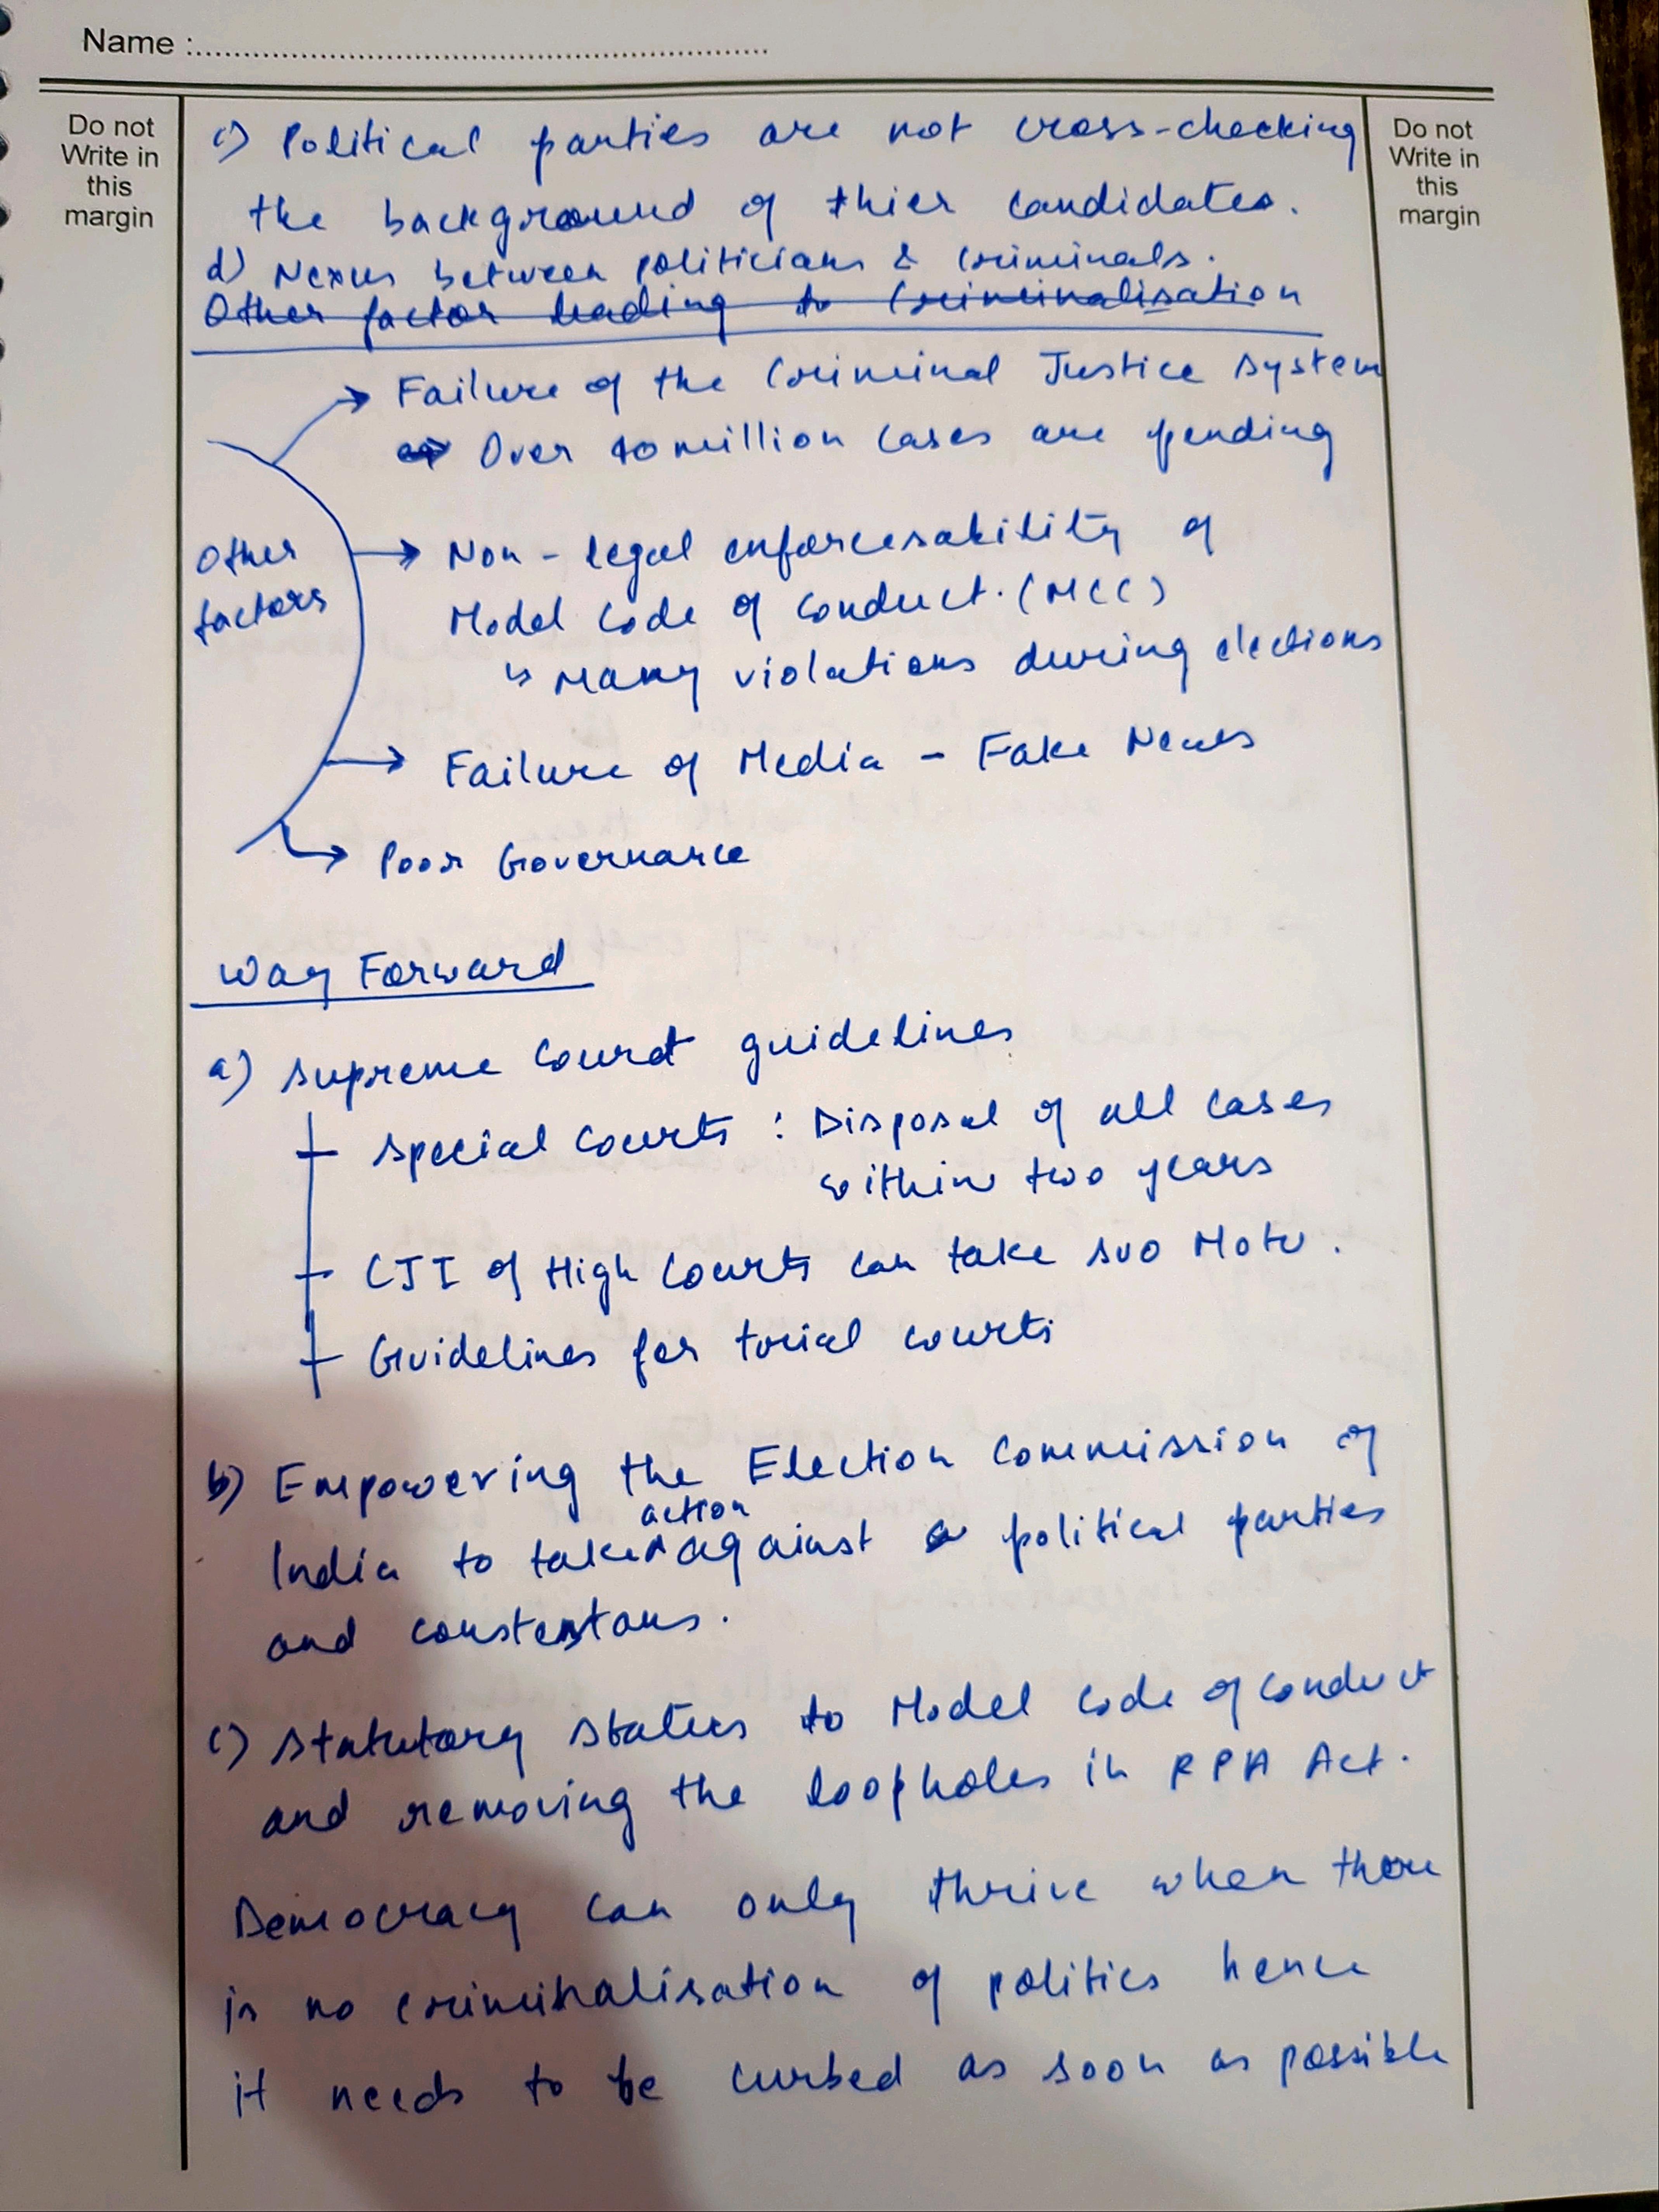 Name :
Do not
Write in
this
margin
Do not
Write in
this
margin
c) Political parties are not cross-checking
the background of thier candidates.
d) Nexus between politicians & criminals.
Other factor leading to Criminalisation
Failure of the Criminal Justice system
Over 40 million cases are pending
Other
factors
Non - legal enforcesability of
Model Code of Conduct. (MCC)
↳ Many violations during elections
Failure of Media - Fake News
Poor Governance
Way Forward
a) Supreme Court guidelines
Special Courts : Disposal of all cases
within two years
CJI of High Courts can take suo Moto.
Guidelines for trial courts
b) Empowering the Election Commission of
action
India to take against political parties
and constestans.
c) Statutory status to Model Code of Conduct
and removing the loopholes in RPA Act.
Democracy can only thrive when there
is no criminalisation of politics hence
it needs to be curbed as soon as possible